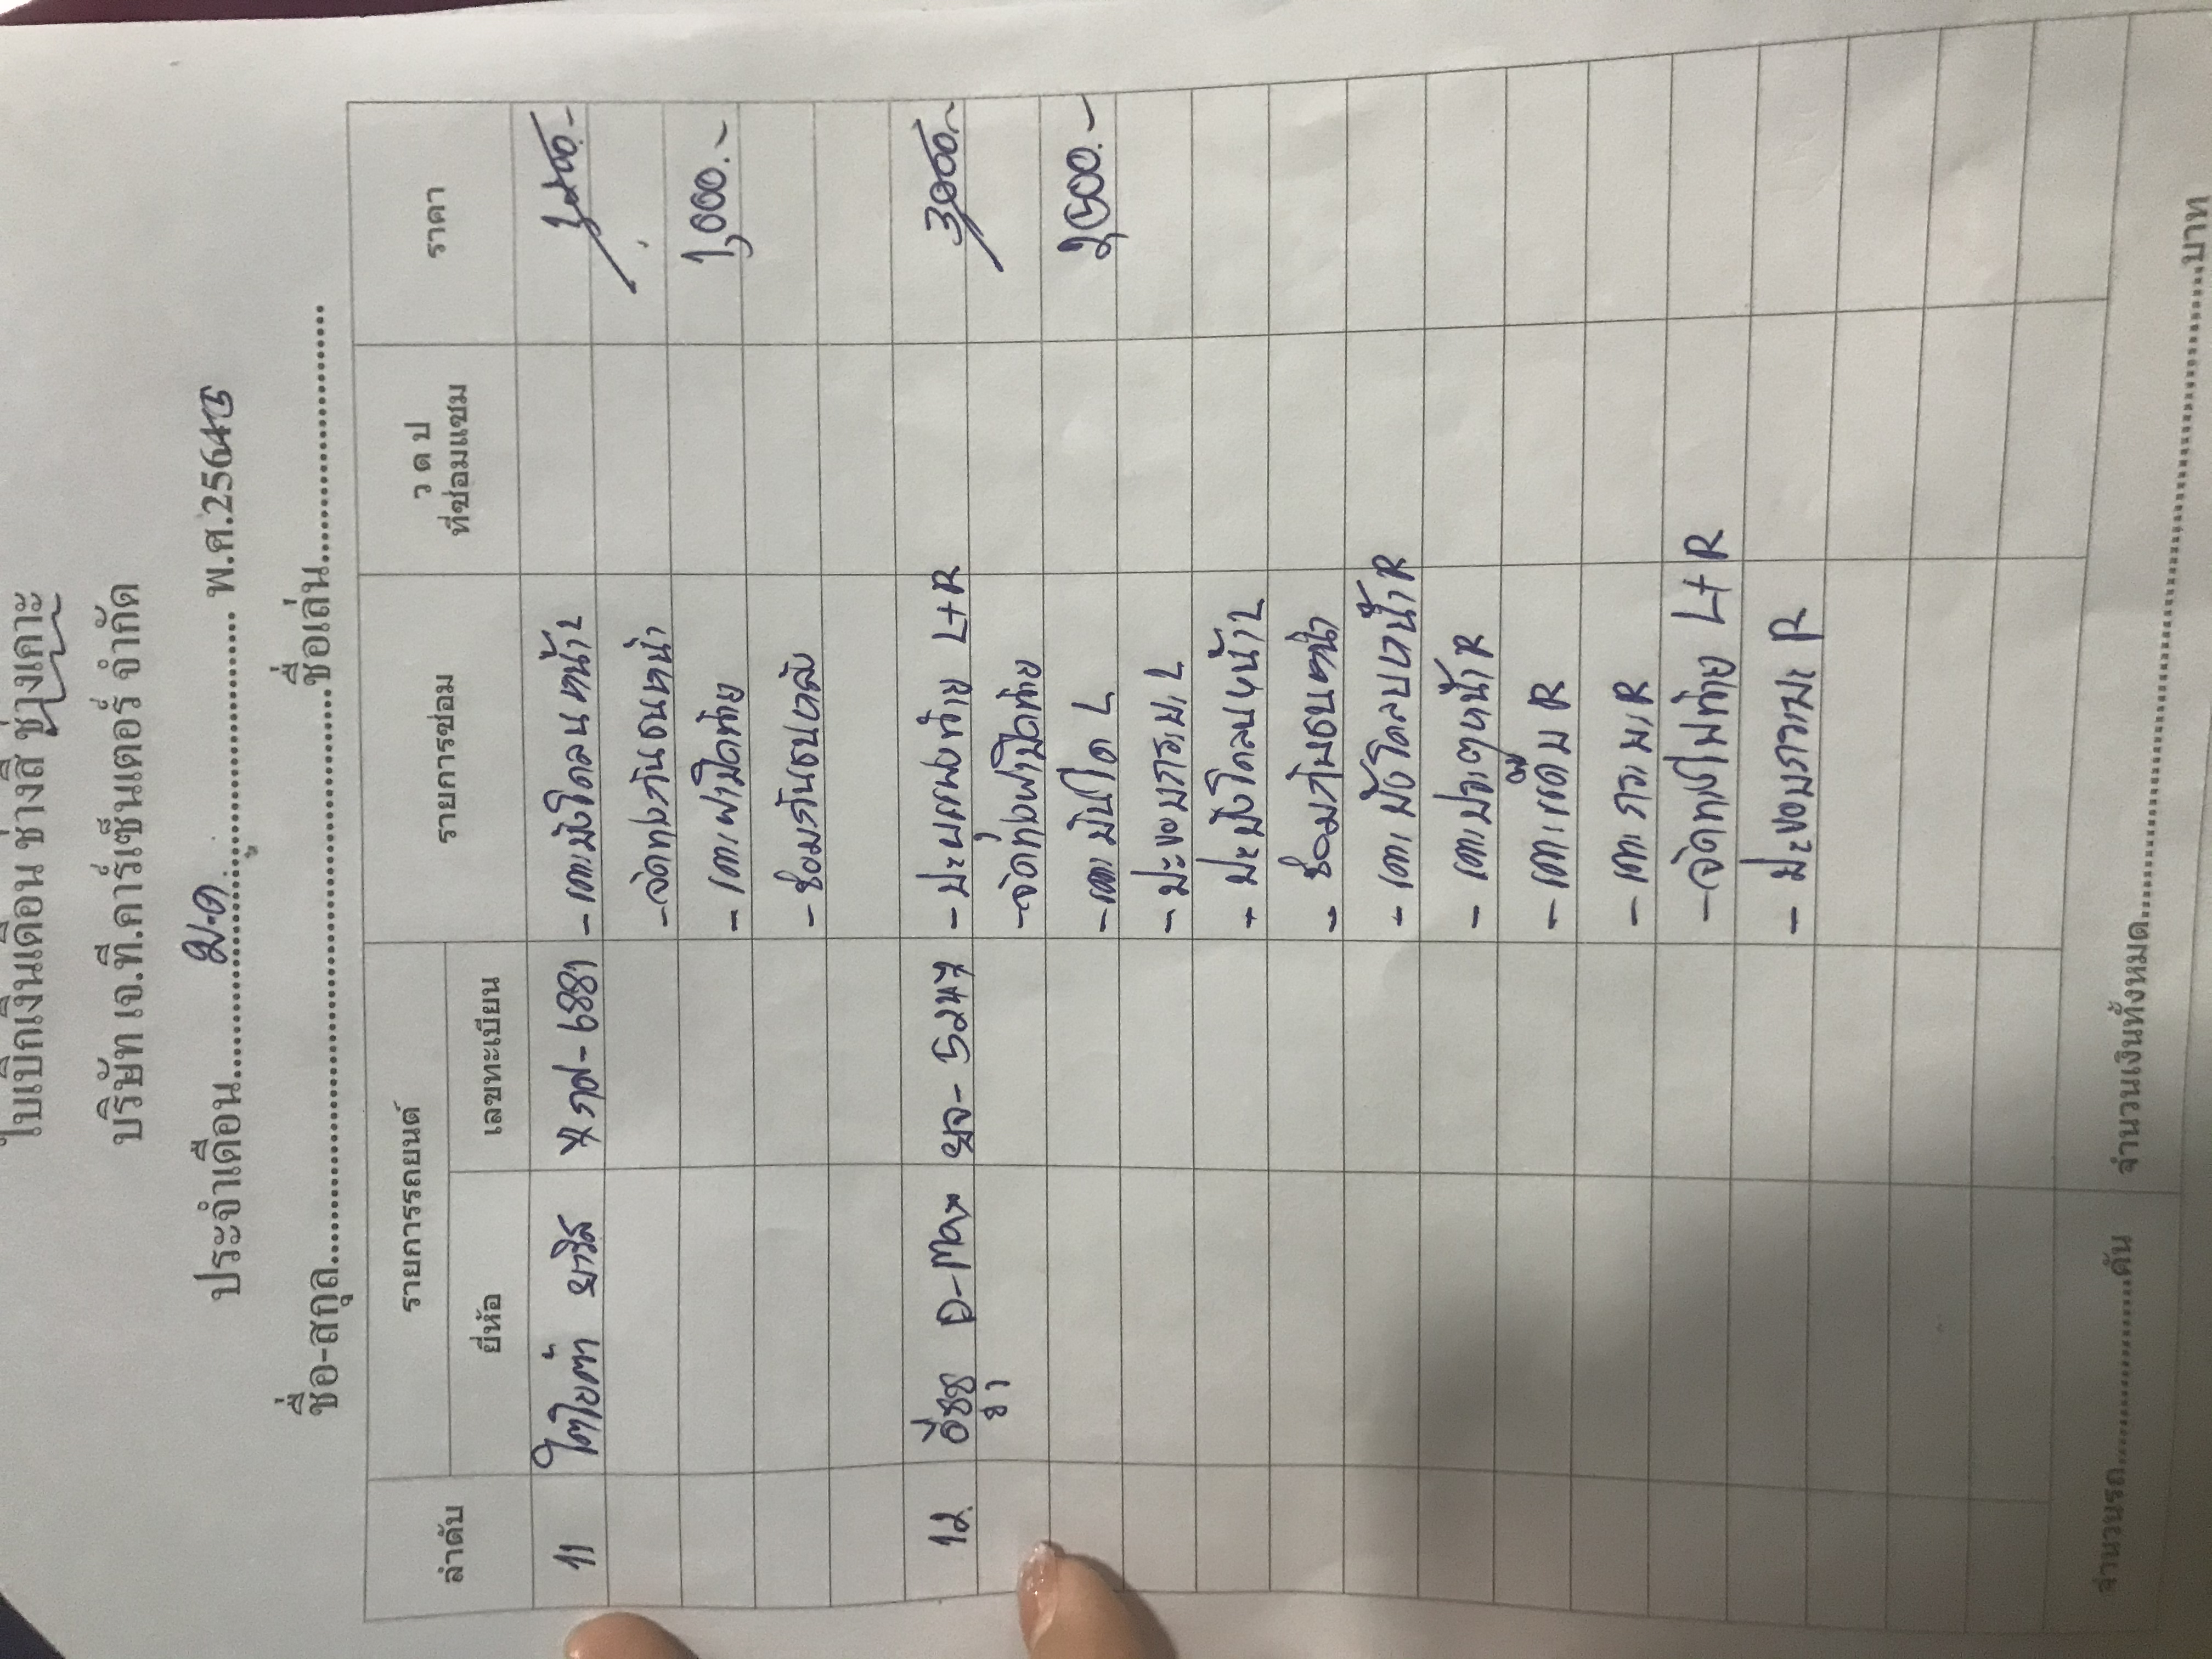 ใบเบิกเงินเดือน ช่างสี ช่างเคาะ
บริษัท เจ.ที.คาร์เซ็นเตอร์ จำกัด
ประจำเดือน ม.ค. พ.ศ.2564
ชื่อ-สกุล ชื่อเล่น
ลำดับ รายการรถยนต์ รายการซ่อม ว ด ป ที่ซ่อมแซม ราคา
ยี่ห้อ เลขทะเบียน
11 โตโยต้า ยาริส กฮ-6881 - เคาะบังโคลนหน้า L
- จัดทรงกันชนหน้า
- เคาะฝาปิดท้าย 1,000.-
- ซ่อมกันชนหลัง
12 อีซูซุ D-Max ผจ-5247 - ปะแผงท้าย L+R 3000.-
- จัดทรงฝาปิดท้าย
- เคาะบันได L 2500.-
- ปะขอบกระบะ L
- ปะบังโคลนหน้า L
- ซ่อมกันชนหน้า
- เคาะบังโคลนหน้า R
- เคาะประตูหน้า R
- เคาะแค็บ R
- เคาะกระบะ R
- จัดทรงไฟท้าย L+R
- ปะขอบกระบะ R
จำนวนรถ คัน จำนวนเงินทั้งหมด บาท